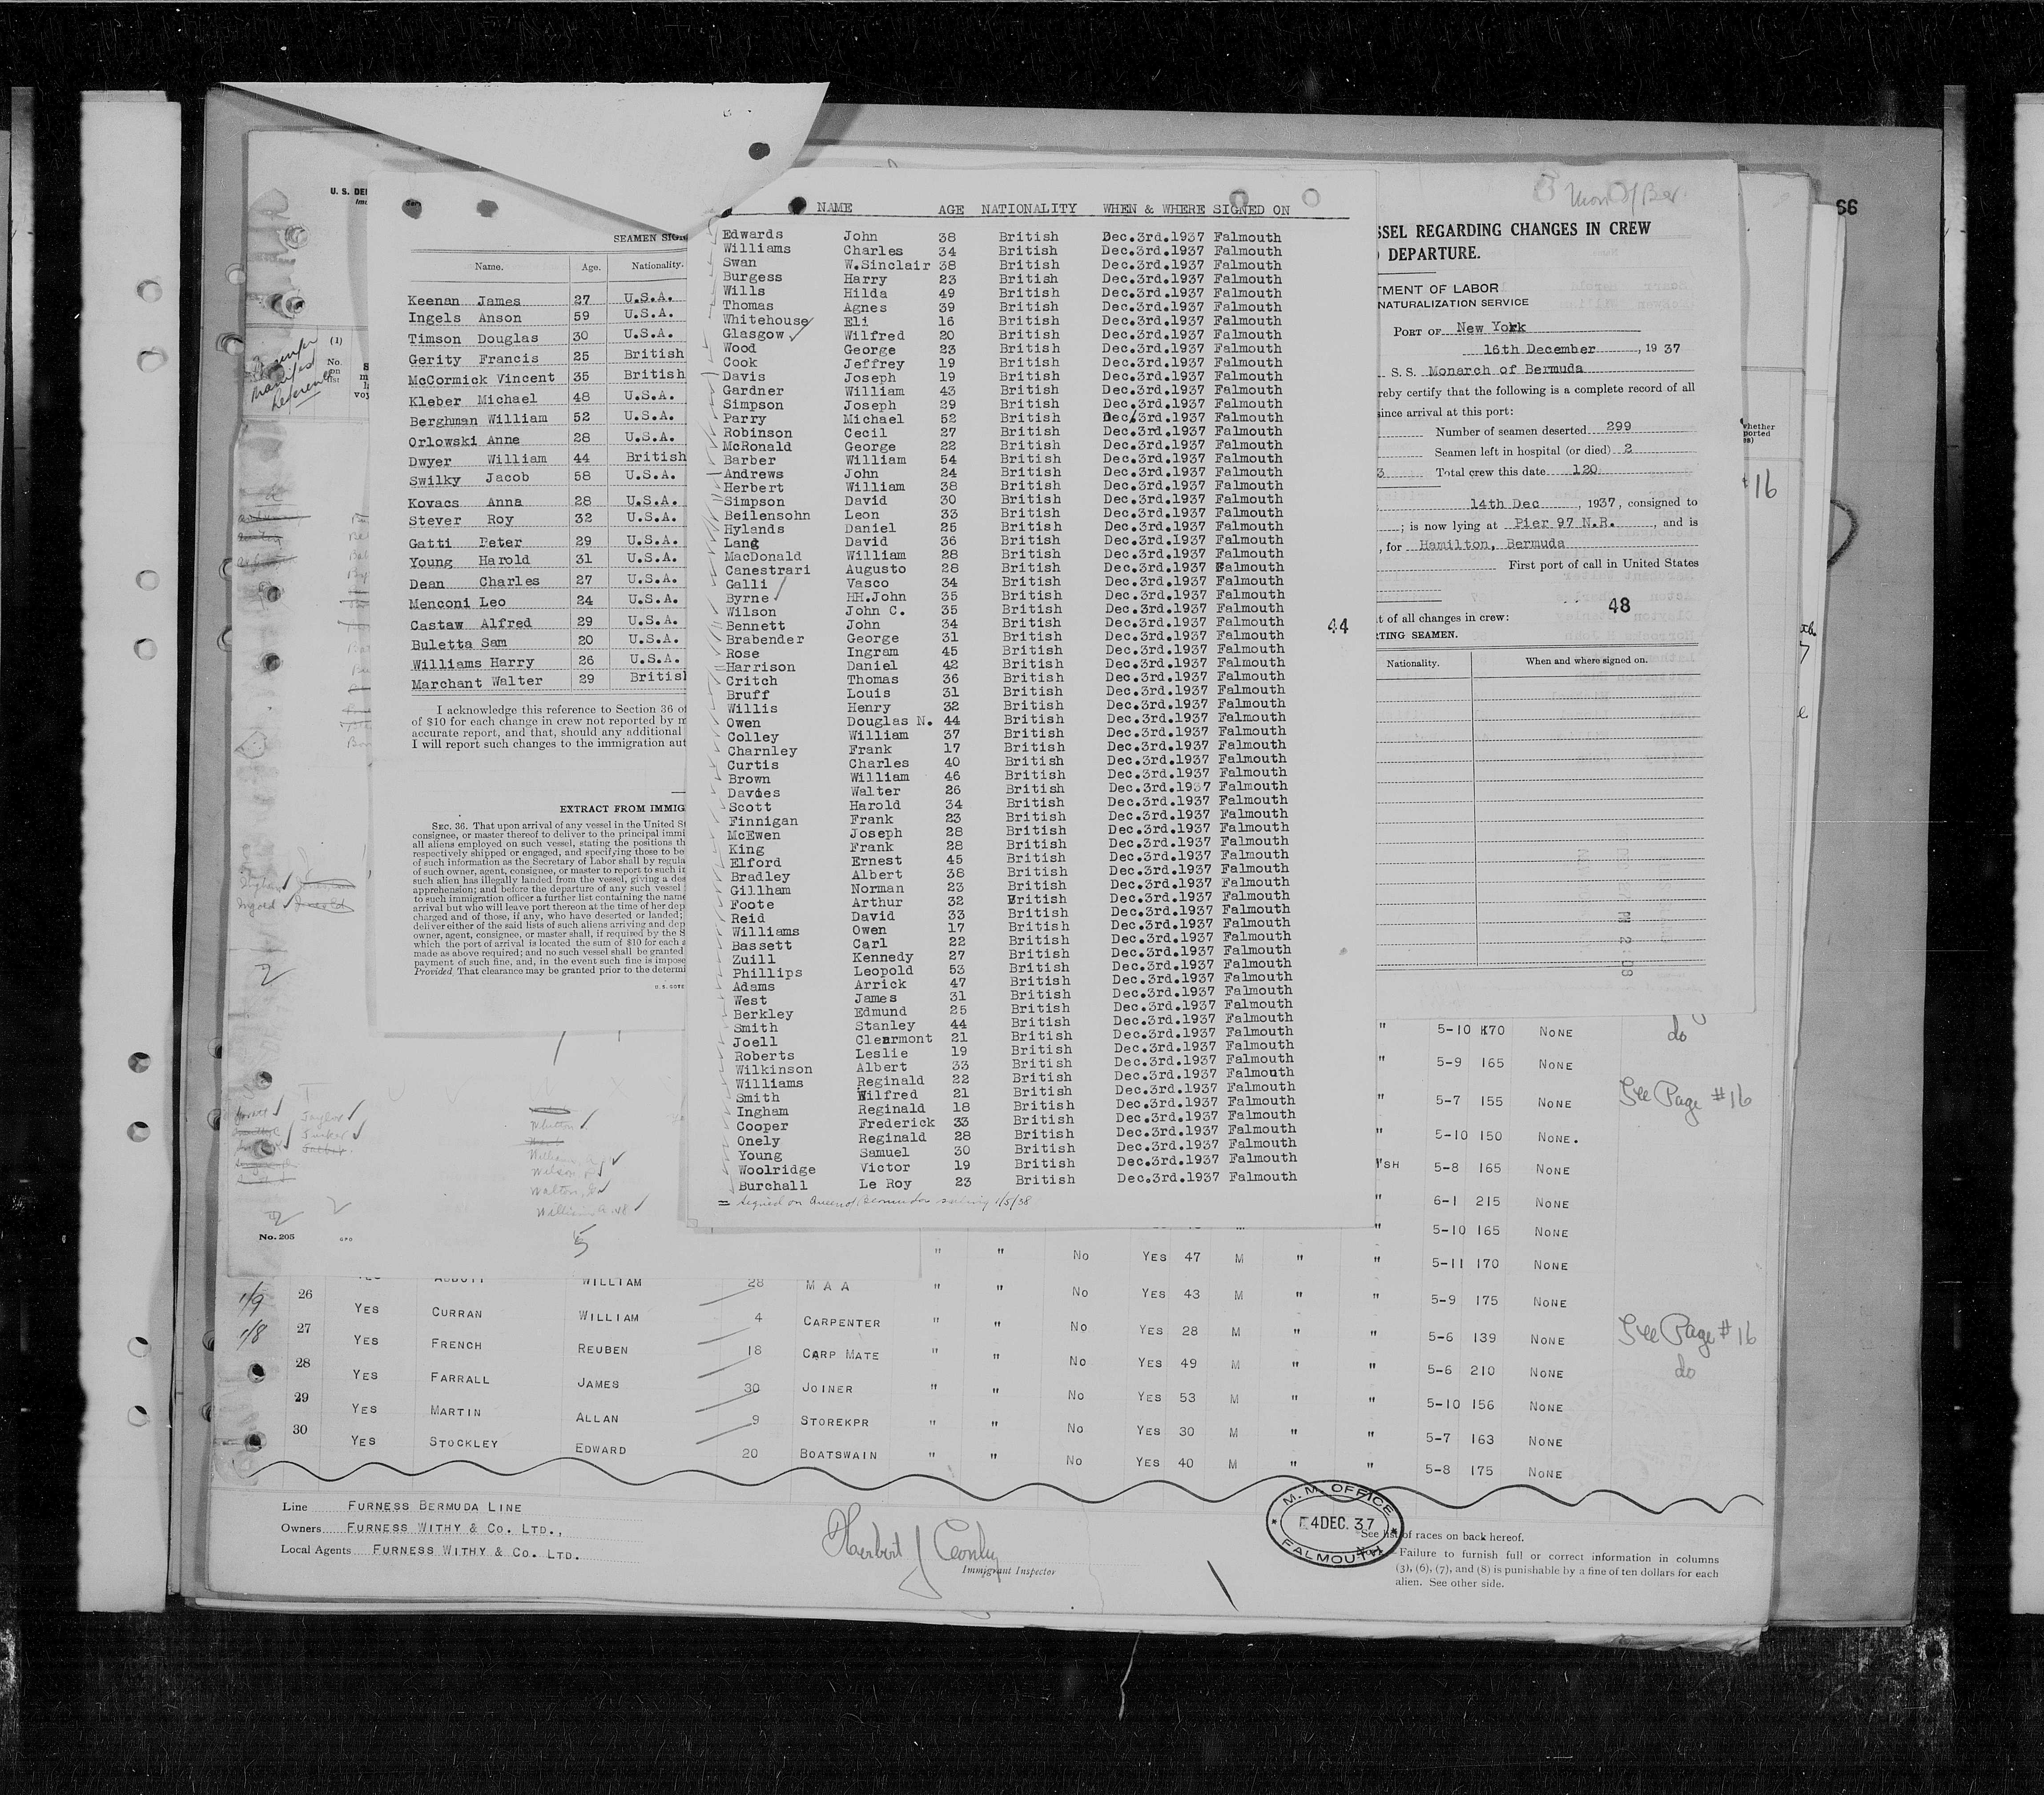 66
U. S. DE
SEAMEN SIGN
Name. Age. Nationality.
Keenan James 27 U.S.A.
Ingels Anson 59 U.S.A.
Timson Douglas 30 U.S.A.
Gerity Francis 25 British
McCormick Vincent 35 British
Kleber Michael 48 U.S.A.
Berghman William 52 U.S.A.
Orlowski Anne 28 U.S.A.
Dwyer William 44 British
Swilky Jacob 58 U.S.A.
Kovacs Anna 28 U.S.A.
Stever Roy 32 U.S.A.
Gatti Peter 29 U.S.A.
Young Harold 31 U.S.A.
Dean Charles 27 U.S.A.
Menconi Leo 24 U.S.A.
Castaw Alfred 29 U.S.A.
Buletta Sam 20 U.S.A.
Williams Harry 26 U.S.A.
Marchant Walter 29 British
I acknowledge this reference to Section 36 of
of $10 for each change in crew not reported by m
accurate report, and that, should any additional
I will report such changes to the immigration aut
EXTRACT FROM IMMIG
SEC. 36. That upon arrival of any vessel in the United St
consignee, or master thereof to deliver to the principal immi
all aliens employed on such vessel, stating the positions th
respectively shipped or engaged, and specifying those to be
of such information as the Secretary of Labor shall by regula
of such owner, agent, consignee, or master to report to such i
such alien has illegally landed from the vessel, giving a des
apprehension; and before the departure of any such vessel
to such immigration officer a further list containing the name
arrival but who will leave port thereon at the time of her dep
charged and of those, if any, who have deserted or landed;
deliver either of the said lists of such aliens arriving and dep
owner, agent, consignee, or master shall, if required by the S
which the port of arrival is located the sum of $10 for each a
made as above required; and no such vessel shall be granted
payment of such fine, and, in the event such fine is impose
Provided That clearance may be granted prior to the determi
NAME AGE NATIONALITY WHEN & WHERE SIGNED ON
Edwards John 38 British Dec.3rd.1937 Falmouth
Williams Charles 34 British Dec.3rd.1937 Falmouth
Swan W.Sinclair 38 British Dec.3rd.1937 Falmouth
Burgess Harry 23 British Dec.3rd.1937 Falmouth
Wills Hilda 49 British Dec.3rd.1937 Falmouth
Thomas Agnes 39 British Dec.3rd.1937 Falmouth
Whitehouse Eli 16 British Dec.3rd.1937 Falmouth
Glasgow Wilfred 20 British Dec.3rd.1937 Falmouth
Wood George 23 British Dec.3rd.1937 Falmouth
Cook Jeffrey 19 British Dec.3rd.1937 Falmouth
Davis Joseph 19 British Dec.3rd.1937 Falmouth
Gardner William 43 British Dec.3rd.1937 Falmouth
Simpson Joseph 29 British Dec.3rd.1937 Falmouth
Parry Michael 52 British Dec.3rd.1937 Falmouth
Robinson Cecil 27 British Dec.3rd.1937 Falmouth
McRonald George 22 British Dec.3rd.1937 Falmouth
Barber William 54 British Dec.3rd.1937 Falmouth
Andrews John 24 British Dec.3rd.1937 Falmouth
Herbert William 38 British Dec.3rd.1937 Falmouth
Simpson David 30 British Dec.3rd.1937 Falmouth
Beilensohn Leon 33 British Dec.3rd.1937 Falmouth
Hylands Daniel 25 British Dec.3rd.1937 Falmouth
Lang David 36 British Dec.3rd.1937 Falmouth
MacDonald William 28 British Dec.3rd.1937 Falmouth
Canestrari Augusto 28 British Dec.3rd.1937 Falmouth
Galli Vasco 34 British Dec.3rd.1937 Falmouth
Byrne HH.John 35 British Dec.3rd.1937 Falmouth
Wilson John C. 35 British Dec.3rd.1937 Falmouth
Bennett John 34 British Dec.3rd.1937 Falmouth
Brabender George 31 British Dec.3rd.1937 Falmouth
Rose Ingram 45 British Dec.3rd.1937 Falmouth
Harrison Daniel 42 British Dec.3rd.1937 Falmouth
Critch Thomas 36 British Dec.3rd.1937 Falmouth
Bruff Louis 31 British Dec.3rd.1937 Falmouth
Willis Henry 32 British Dec.3rd.1937 Falmouth
Owen Douglas N. 44 British Dec.3rd.1937 Falmouth
Colley William 37 British Dec.3rd.1937 Falmouth
Charnley Frank 17 British Dec.3rd.1937 Falmouth
Curtis Charles 40 British Dec.3rd.1937 Falmouth
Brown William 46 British Dec.3rd.1937 Falmouth
Davies Walter 26 British Dec.3rd.1937 Falmouth
Scott Harold 34 British Dec.3rd.1937 Falmouth
Finnigan Frank 23 British Dec.3rd.1937 Falmouth
McEwen Joseph 28 British Dec.3rd.1937 Falmouth
King Frank 28 British Dec.3rd.1937 Falmouth
Elford Ernest 45 British Dec.3rd.1937 Falmouth
Bradley Albert 38 British Dec.3rd.1937 Falmouth
Gillham Norman 23 British Dec.3rd.1937 Falmouth
Foote Arthur 32 British Dec.3rd.1937 Falmouth
Reid David 33 British Dec.3rd.1937 Falmouth
Williams Owen 17 British Dec.3rd.1937 Falmouth
Bassett Carl 22 British Dec.3rd.1937 Falmouth
Zuill Kennedy 27 British Dec.3rd.1937 Falmouth
Phillips Leopold 53 British Dec.3rd.1937 Falmouth
Adams Arrick 47 British Dec.3rd.1937 Falmouth
West James 31 British Dec.3rd.1937 Falmouth
Berkley Edmund 25 British Dec.3rd.1937 Falmouth
Smith Stanley 44 British Dec.3rd.1937 Falmouth
Joell Clearmont 21 British Dec.3rd.1937 Falmouth
Roberts Leslie 19 British Dec.3rd.1937 Falmouth
Wilkinson Albert 33 British Dec.3rd.1937 Falmouth
Williams Reginald 22 British Dec.3rd.1937 Falmouth
Smith Wilfred 21 British Dec.3rd.1937 Falmouth
Ingham Reginald 18 British Dec.3rd.1937 Falmouth
Cooper Frederick 33 British Dec.3rd.1937 Falmouth
Onely Reginald 28 British Dec.3rd.1937 Falmouth
Young Samuel 30 British Dec.3rd.1937 Falmouth
Woolridge Victor 19 British Dec.3rd.1937 Falmouth
Burchall Le Roy 23 British Dec.3rd.1937 Falmouth
= signed on Queen of Bermuda sailing 1/5/38
44
Mon of Ber.
SSEL REGARDING CHANGES IN CREW
DEPARTURE.
TMENT OF LABOR
NATURALIZATION SERVICE
PORT OF New York
16th December, 1937
S. S. Monarch of Bermuda
reby certify that the following is a complete record of all
since arrival at this port:
Number of seamen deserted 299
Seamen left in hospital (or died) 2
3 Total crew this date 120
14th Dec, 1937, consigned to
; is now lying at Pier 97 N.R., and is
, for Hamilton, Bermuda
First port of call in United States
48
t of all changes in crew:
RTING SEAMEN.
Nationality. When and where signed on.
(1)
No. on list
Transfer manifest Reference
whether
ported
#16
" 5-10 170 NONE do
" 5-9 165 NONE
" 5-7 155 NONE See Page #16
" 5-10 150 NONE.
SH 5-8 165 NONE
" 6-1 215 NONE
" 5-10 165 NONE
Taylor
Tucker
2
2
5
No. 205
GPO
" " No YES 47 M " " 5-11 170 NONE
26 ABBOTT WILLIAM 28 M A A " " No YES 43 M " " 5-9 175 NONE
1/9 27 YES CURRAN WILLIAM 4 CARPENTER " " No YES 28 M " " 5-6 139 NONE See Page #16
1/8 28 YES FRENCH REUBEN 18 CARP MATE " " No YES 49 M " " 5-6 210 NONE do
29 YES FARRALL JAMES 30 JOINER " " No YES 53 M " " 5-10 156 NONE
30 YES MARTIN ALLAN 9 STOREKPR " " No YES 30 M " " 5-7 163 NONE
YES STOCKLEY EDWARD 20 BOATSWAIN " " No YES 40 M " " 5-8 175 NONE
Line FURNESS BERMUDA LINE
Owners FURNESS WITHY & CO. LTD.,
Local Agents FURNESS WITHY & CO. LTD.
Immigrant Inspector
M. M. OFFICE
4DEC.37
FALMOUTH
See list of races on back hereof.
Failure to furnish full or correct information in columns
(3), (6), (7), and (8) is punishable by a fine of ten dollars for each
alien. See other side.